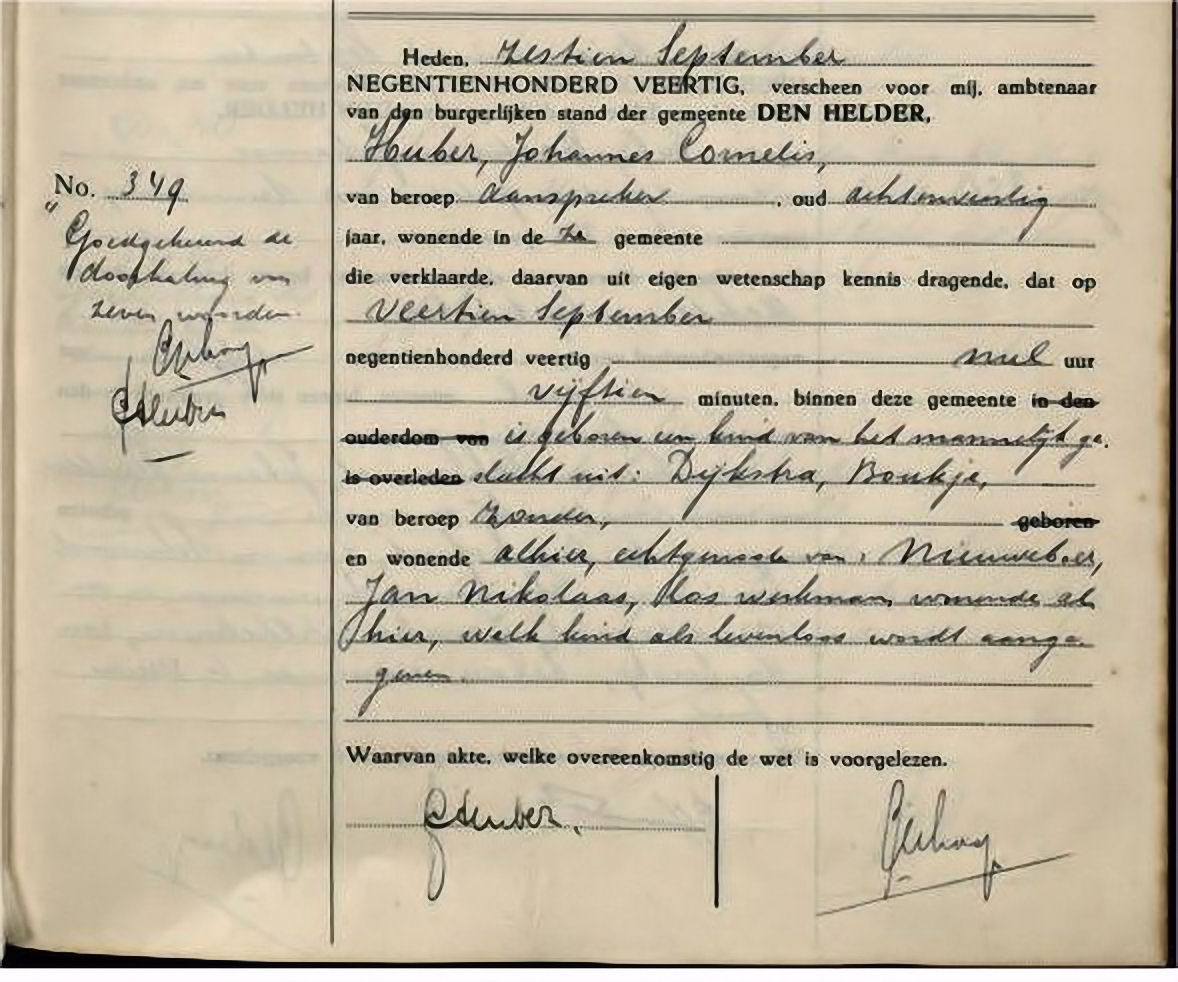 Heden, zestien September
NEGENTIENHONDERD VEERTIG, verscheen voor mij, ambtenaar
van den burgerlijken stand der gemeente DEN HELDER,
Huber, Johannes Cornelis,
van beroep aanspreker, oud achtenveertig
jaar, wonende in de ze gemeente
die verklaarde, daarvan uit eigen wetenschap kennis dragende, dat op
veertien September
negentienhonderd veertig nul uur
vijftien minuten, binnen deze gemeente in den
ouderdom van is geboren een kind van het mannelijk ge-
is overleden slacht uit: Dijkstra, Boukje,
van beroep zonder, geboren
en wonende alhier, echtgenoote van: Nieuweboer,
Jan Nikolaas, los werkman, wonende al-
hier, welk kind als levenloos wordt aange-
geven.
Waarvan akte, welke overeenkomstig de wet is voorgelezen.
JHuber.
No. 349
"Goedgekeurd de
doorhaling van
zeven woorden.
JHuber